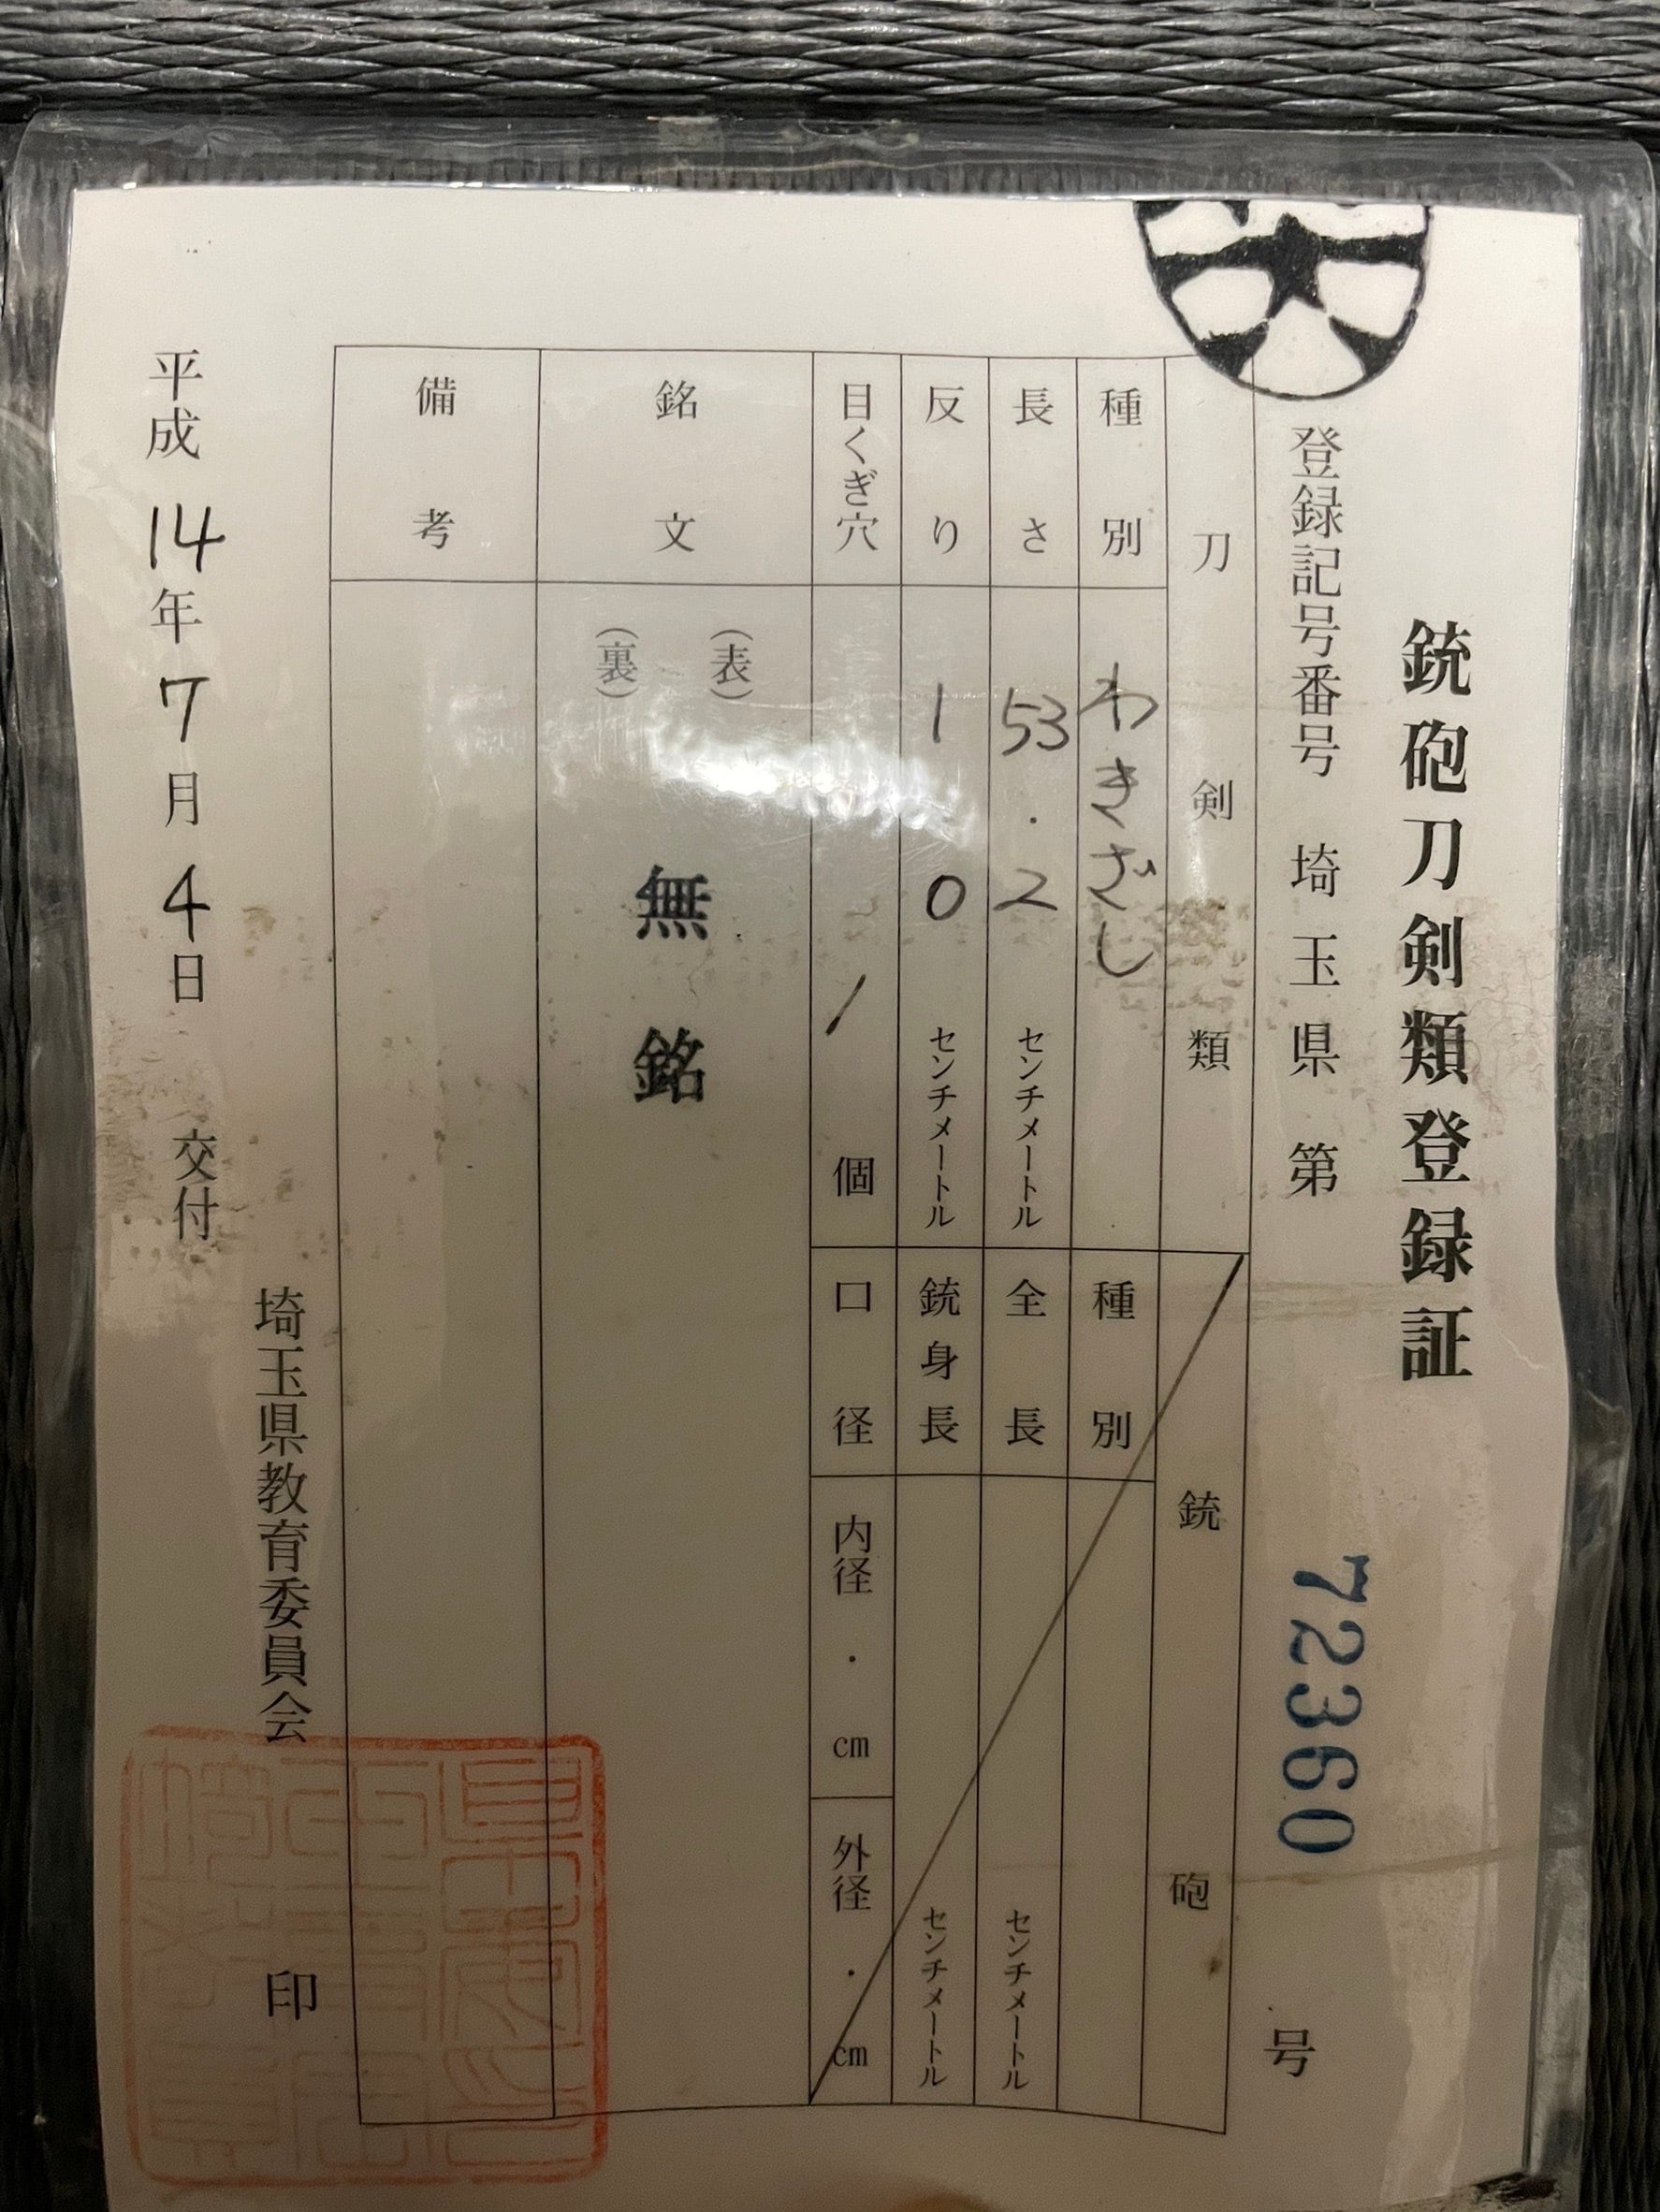 銃砲刀剣類登録証
登録記号番号 埼玉県 第 72360 号
刀剣類
種別 わきざし
長さ 53.2 センチメートル
反り 1 0 センチメートル
目くぎ穴 1 個
銘文 (表) (裏) 無銘
備考
銃砲
種別
全長 センチメートル
銃身長 センチメートル
口径 内径 ・ cm 外径 ・ cm
埼玉県教育委員会 印
平成14年7月4日 交付